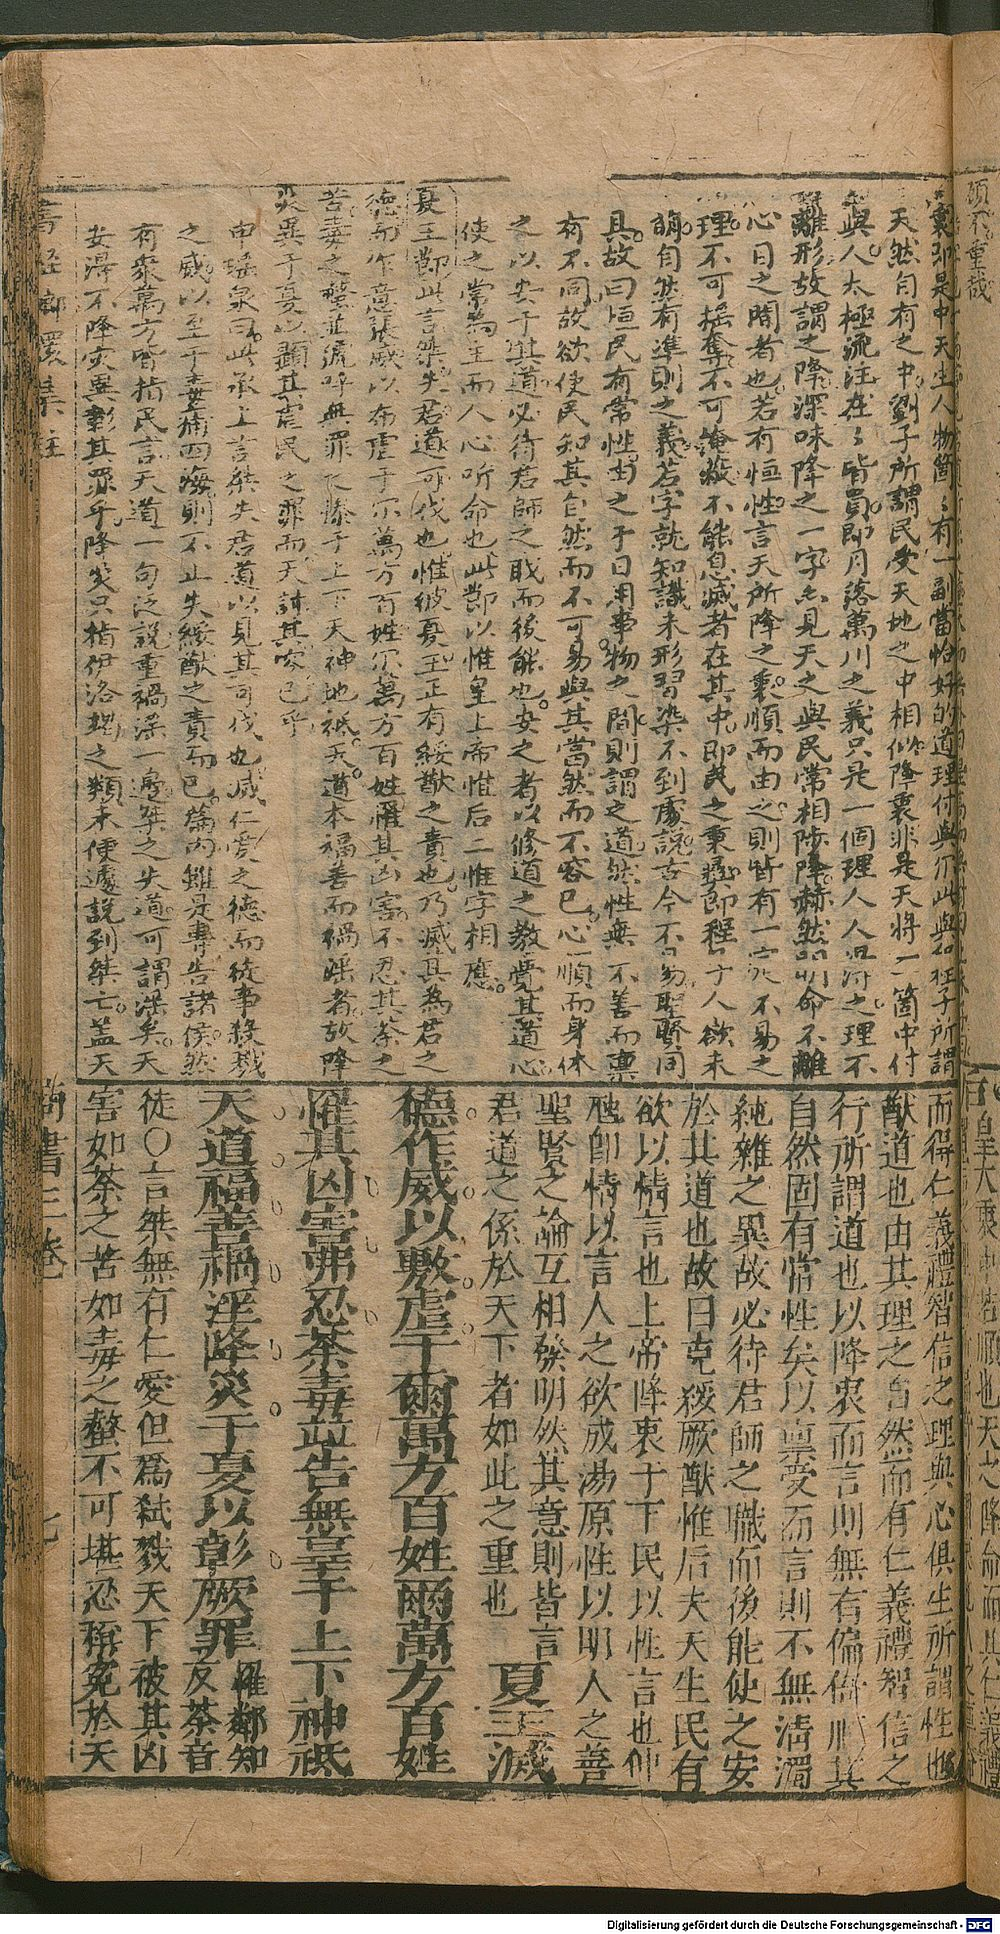 衷即是中天生人物箇〻有一副當恰好的道理付與
天然自有之中劉子所謂民受天地之中相似降衷非是天將一箇中付
與人太極流注在〻皆貫即月落萬川之義只是一個理人人得之理不
離形故謂之降深味降之一字
心目之間者也若有恒性言天所降之衷順而由之則皆有一定不易之
理不可搖奪不可掩蔽不能息滅者在其中即民之秉彝即程子人欲未
萌自然有準則之義若字就知識未形習染不到處說古今不易聖賢同
具故曰恒民有常性由之于日用事物之間則謂之道然性無不善而稟
有不同故欲使民知其自然而不可易與其當然而不容已心順而身体
之以安于其道必待君師之職而後能也安之者以修道之教覺其道心
使之常為主而人心听命也此節以惟皇上帝惟后二惟字相應
夏王節此言桀失君道可伐也惟彼夏王正有綏猷之責也乃滅其為君之
德而作意張威以布虐于尔萬方百姓尔萬方百姓罹其凶害不忍其荼之
苦毒之螫並號呼無罪
災異于夏以顯其虐民之罪而天討其容已乎
申瑤泉曰此承上言桀失君道以見其可伐也滅仁愛之德而從事殺戮
之威以至于毒痡四海則不止失綏猷之責而已篇內雖是專告諸侯然
有眾萬方皆指民言天道一句泛說重禍淫一邊桀之失道可謂淫矣天
安得不降灾異彰其罪乎降災只指伊洛竭之類未便遽說到桀亡蓋天
而得仁義禮智信之理與心俱生所謂性也
猷道也由其理之自然而有仁義禮智信之
行所謂道也以降衷而言則無有偏倚順其
自然固有常性矣以稟受而言則不無清濁
純雜之異故必待君師之職而後能使之安
於其道也故曰克綏厥猷惟后夫天生民有
欲以情言也上帝降衷于下民以性言也仲
虺即情以言人之欲成湯原性以明人之善
聖賢之論互相發明然其意則皆言
君道之係於天下者如此之重也 夏王滅
德作威以敷虐于爾萬方百姓爾萬方百姓
罹其凶害弗忍荼毒並告無辜于上下神祗
天道福善禍淫降災于夏以彰厥罪 罹鄰知反荼音
徒〇言桀無有仁愛但為弒戮天下被其凶
害如荼之苦如毒之螫不可堪忍稱冤於天
商書三卷 七
Digitalisierung gefördert durch die Deutsche Forschungsgemeinschaft - DFG